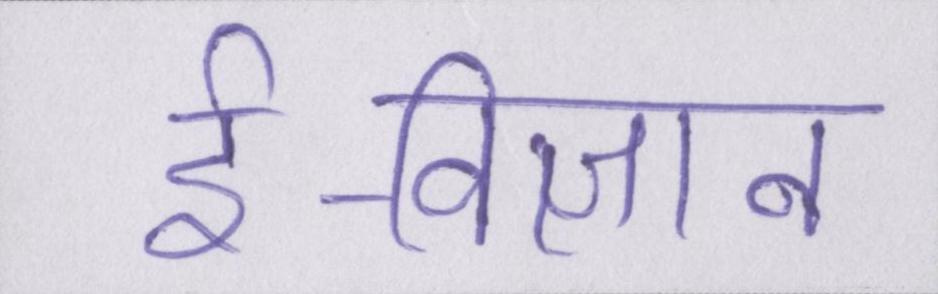 ई-विज्ञान